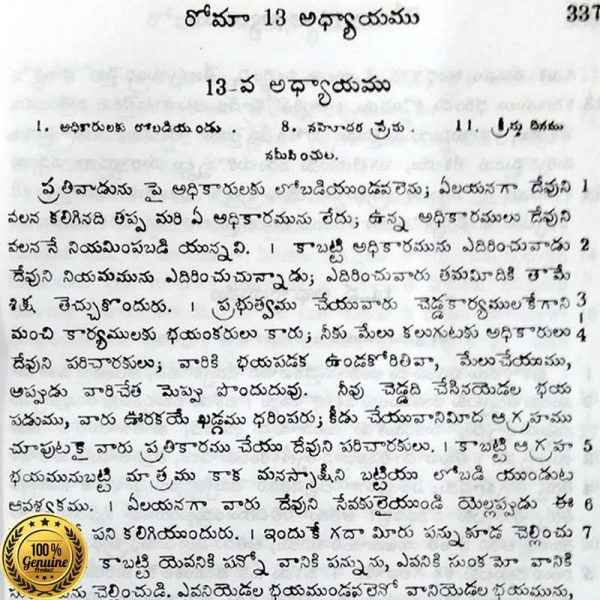 రోమా 13 అధ్యాయము 337
13-వ అధ్యాయము
1. అధికారులకు లోబడియుండు. 8. సహోదర ప్రేమ. 11. క్రీస్తు దినము
సమీపించుట.
ప్రతివాడును పై అధికారులకు లోబడియుండవలెను; ఏలయనగా దేవుని 1
వలన కలిగినది తప్ప మరి ఏ అధికారమును లేదు; ఉన్న అధికారములు దేవుని
వలననే నియమింపబడి యున్నవి. । కాబట్టి అధికారమును ఎదిరించువాడు 2
దేవుని నియమమును ఎదిరించుచున్నాడు; ఎదిరించువారు తమమీదికి తామే
శిక్ష తెచ్చుకొందురు. । ప్రభుత్వము చేయువారు చెడ్డకార్యములకేగాని 3
మంచి కార్యములకు భయంకరులు కారు; నీకు మేలు కలుగుటకు అధికారులు 4
దేవుని పరిచారకులు; వారికి భయపడక ఉండకోరితివా, మేలుచేయుము,
అప్పుడు వారిచేత మెప్పు పొందుదువు. నీవు చెడ్డది చేసినయెడల భయ
పడుము, వారు ఊరకయే ఖడ్గము ధరింపరు; కీడు చేయువానిమీద ఆగ్రహము
చూపుటకై వారు ప్రతికారము చేయు దేవుని పరిచారకులు. । కాబట్టి ఆగ్రహ 5
భయమునుబట్టి మాత్రము కాక మనస్సాక్షిని బట్టియు లోబడి యుండుట
ఆవశ్యకము. । ఏలయనగా వారు దేవుని సేవకులైయుండి యెల్లప్పుడు ఈ 6
పని కలిగియుందురు. । ఇందుకే గదా మీరు పన్నుకూడ చెల్లించు 7
కాబట్టి యెవనికి పన్నో వానికి పన్నును, ఎవనికి సుంకమో వానికి
చెల్లించుడి. ఎవనియెడల భయముండవలెనో వానియెడల భయమును,
100%
Genuine
Product